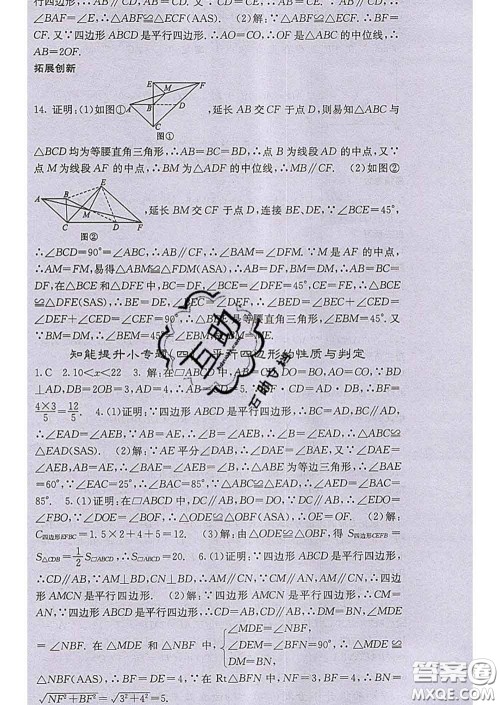 行四边形,∴AB∥CF,∴
△BAF=∠E,∴△ABF≌△ECF(AAS). (2)解:∵△ABF≌△ECF,∴BF=
CF. 又∵四边形 ABCD 是平行四边形,∴AO=CO,∴OF 是△ABC 的中位线,∴
AB=2OF.
拓展创新
14. 证明:(1)如图① ,延长 AB 交 CF 于点 D,则易知△ABC 与
E F M A B D C
图①
△BCD 均为等腰直角三角形,∴AB=BC=BD,∴点 B 为线段 AD 的中点,又∵
点 M 为线段 AF 的中点,∴BM 为△ADF 的中位线,∴BM∥CF. (2)如图②
A B E M C D F
图②
,延长 BM 交 CF 于点 D,连接 BE、DE,∵∠BCE=45°,
∴∠BCD=90°=∠ABC,∴AB∥CF,∴∠BAM=∠DFM. ∵M 是 AF 的中点,
∴AM=FM,易得△ABM≌△FDM(ASA),∴AB=DF. ∵AB=BC,∴BC=
DF,在△BCE 和△DFE 中,BC=DF,∠BCE=∠DFE=45°,CE=FE,∴△BCE
≌△DFE(SAS),∴BE=DE,∠BEC=∠DEF,∴∠BED=∠BEC+∠CED=
∠DEF+∠CED=∠CEF=90°,∴△BDE 是等腰直角三角形,∴∠EBM=45°. 又
∵BM=DM,∴BM=EM=
知能提升小专题(四) 平行四边形的性质与判定
1. C 2. 10<x<22 3. 解:在□ABCD 中,
DO,BO=AO=CO. ∵BD
⊥AD,∴BD=2OB=3,AD=4,∴AB=5.
·CD=AD·DB,∴BF=
4×3/5=12/5. 4. (1)证明:∵四边形 ABCD 是平行四边形,∴BC∥AD,BC=AD,
∴∠EAD=∠AEB,∵AB=AE,∴∠B=∠AEB,∴∠B=∠EAD,∴△ABC≌
△EAD(SAS). (2)解:∵AE 平分∠DAB,∴∠DAE=∠BAE,又∵∠DAE=
∠AEB,∴∠BAE=∠AEB=∠B,∴△ABE 为等边三角形,∴∠BAE=60°,∵
∠EAC=25°,∴∠BAC=85°,∵△ABC≌△EAD,∴∠AED=∠BAC=
85°. 5. (1)证明:在□ABCD 中,DC∥AB,OD=OB,∴∠EDO=
∠FBO,∵∠DOE=∠BOF,∴△ODE≌△OBF(ASA),∴OE=OF. (2)解:
C四边形EFBC=1.5×2+4+5=12. (3)解:由△ODE≌△OBF,得 S四边形CEFB=
S△CDB=1/2S□ABCD,∴S□ABCD=20. 6. (1)证明:∵四边形 ABCD 是平行四边形,
∴CD∥AB,∵AM⊥BD,CN⊥BD,∴AM∥CN,∴CM∥AN,AM∥CN,∴四边
形 AMCN 是平行四边形. (2)解:∵四边形 AMCN 是平行四边形,∴CM=
AN,∵四边形 ABCD 是平行四边形,∴CD=AB,CD∥AB,∴DM=BN,∠MDE
=∠NBF. 在△MDE 和△NBF 中,{∠MDE=∠NBF, ∠DEM=∠NFB=90°, DM=BN, ∴△MDE≌
△NBF(AAS),∴ME=NF=3,DE=BF=4,∵在 Rt△BFN 中,∠BFN=90°,∴BN=
√NF²+BF²=√3²+4²=5.
互助
互助专题
答案圈
MXQE.COM